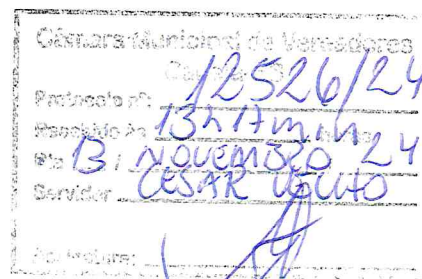 Câmara Municipal de Vereadores
Protocolo nº: 12526/24
Recebido às 13h17min
Dia 13 / NOVEMBRO 24
Servidor CESAR
Assinatura: